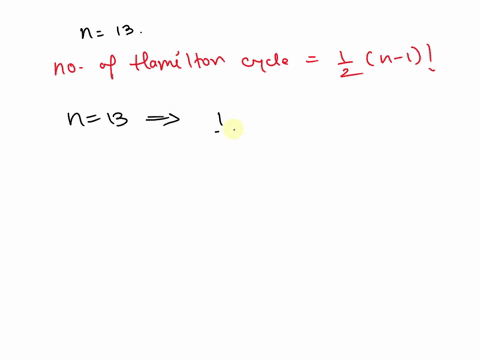 n = 13.
no. of Hamilton cycle = 1/2 (n-1)!
n = 13 ⟹